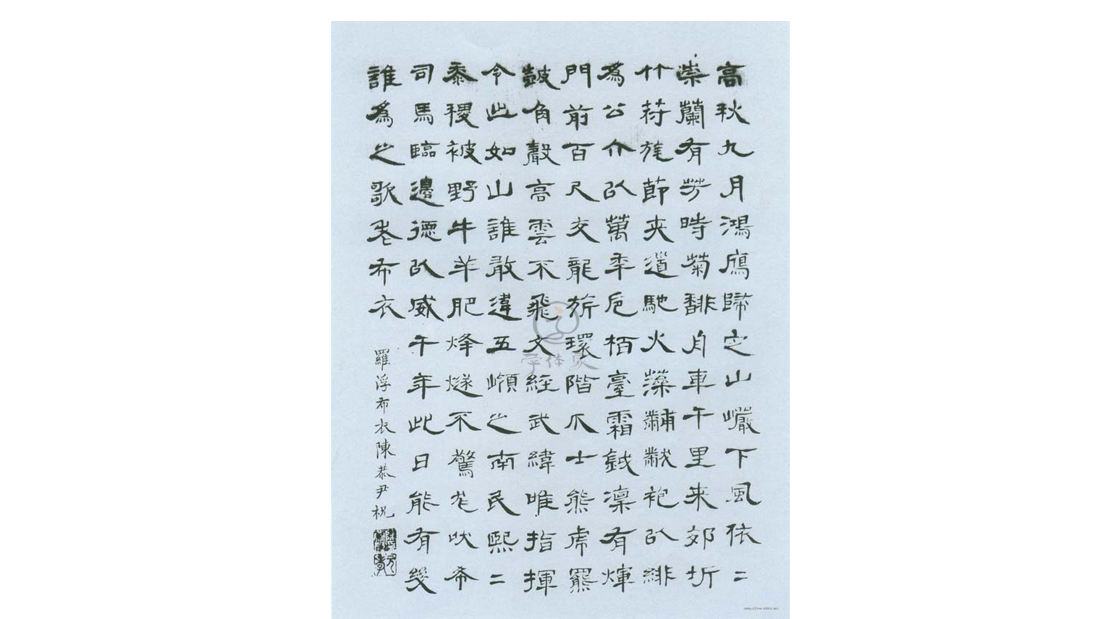 高秋九月鴻鴈歸之山巖下風依二
崇蘭有芳時菊馡自車千里来郊圻
竹苻旄節夾道馳火藻黼黻袍以緋
為公介以萬年卮栢臺霜鉞凛有煇
門前百尺交龍旂環階爪士熊虎羆
鼓角聲高雲不飛文經武緯唯指揮
令此如山誰敢違五嶺之南民熙二
黍稷被野牛羊肥烽燧不驚尨吠希
司馬臨邊德以威千年此日能有幾
誰為之歌老布衣
羅浮布衣陳恭尹祝
字体家